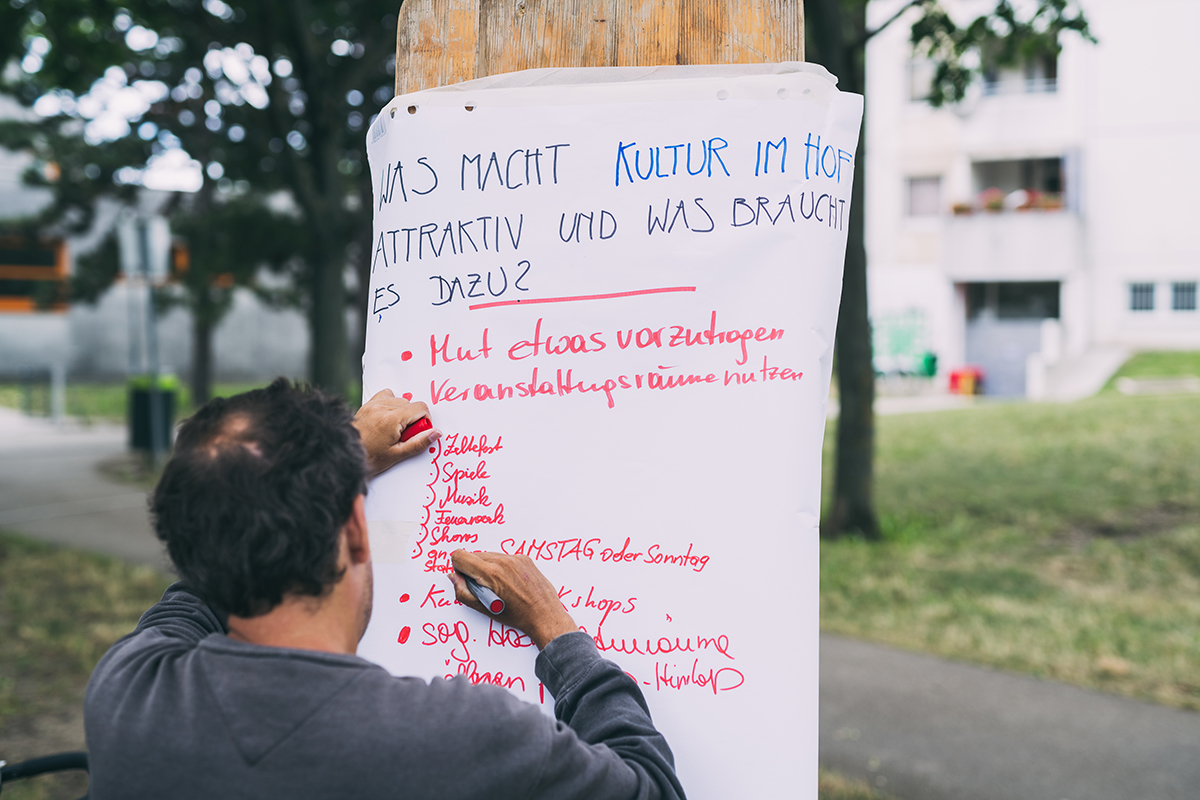 WAS MACHT KULTUR IM HOF
ATTRAKTIV UND WAS BRAUCHT
ES DAZU?
• Mut etwas vorzutragen
• Veranstaltungsräume nutzen
Zeltefest
Spiele
Musik
Feuerwerk
Shows
SAMSTAG oder Sonntag
• kshops
• sog.